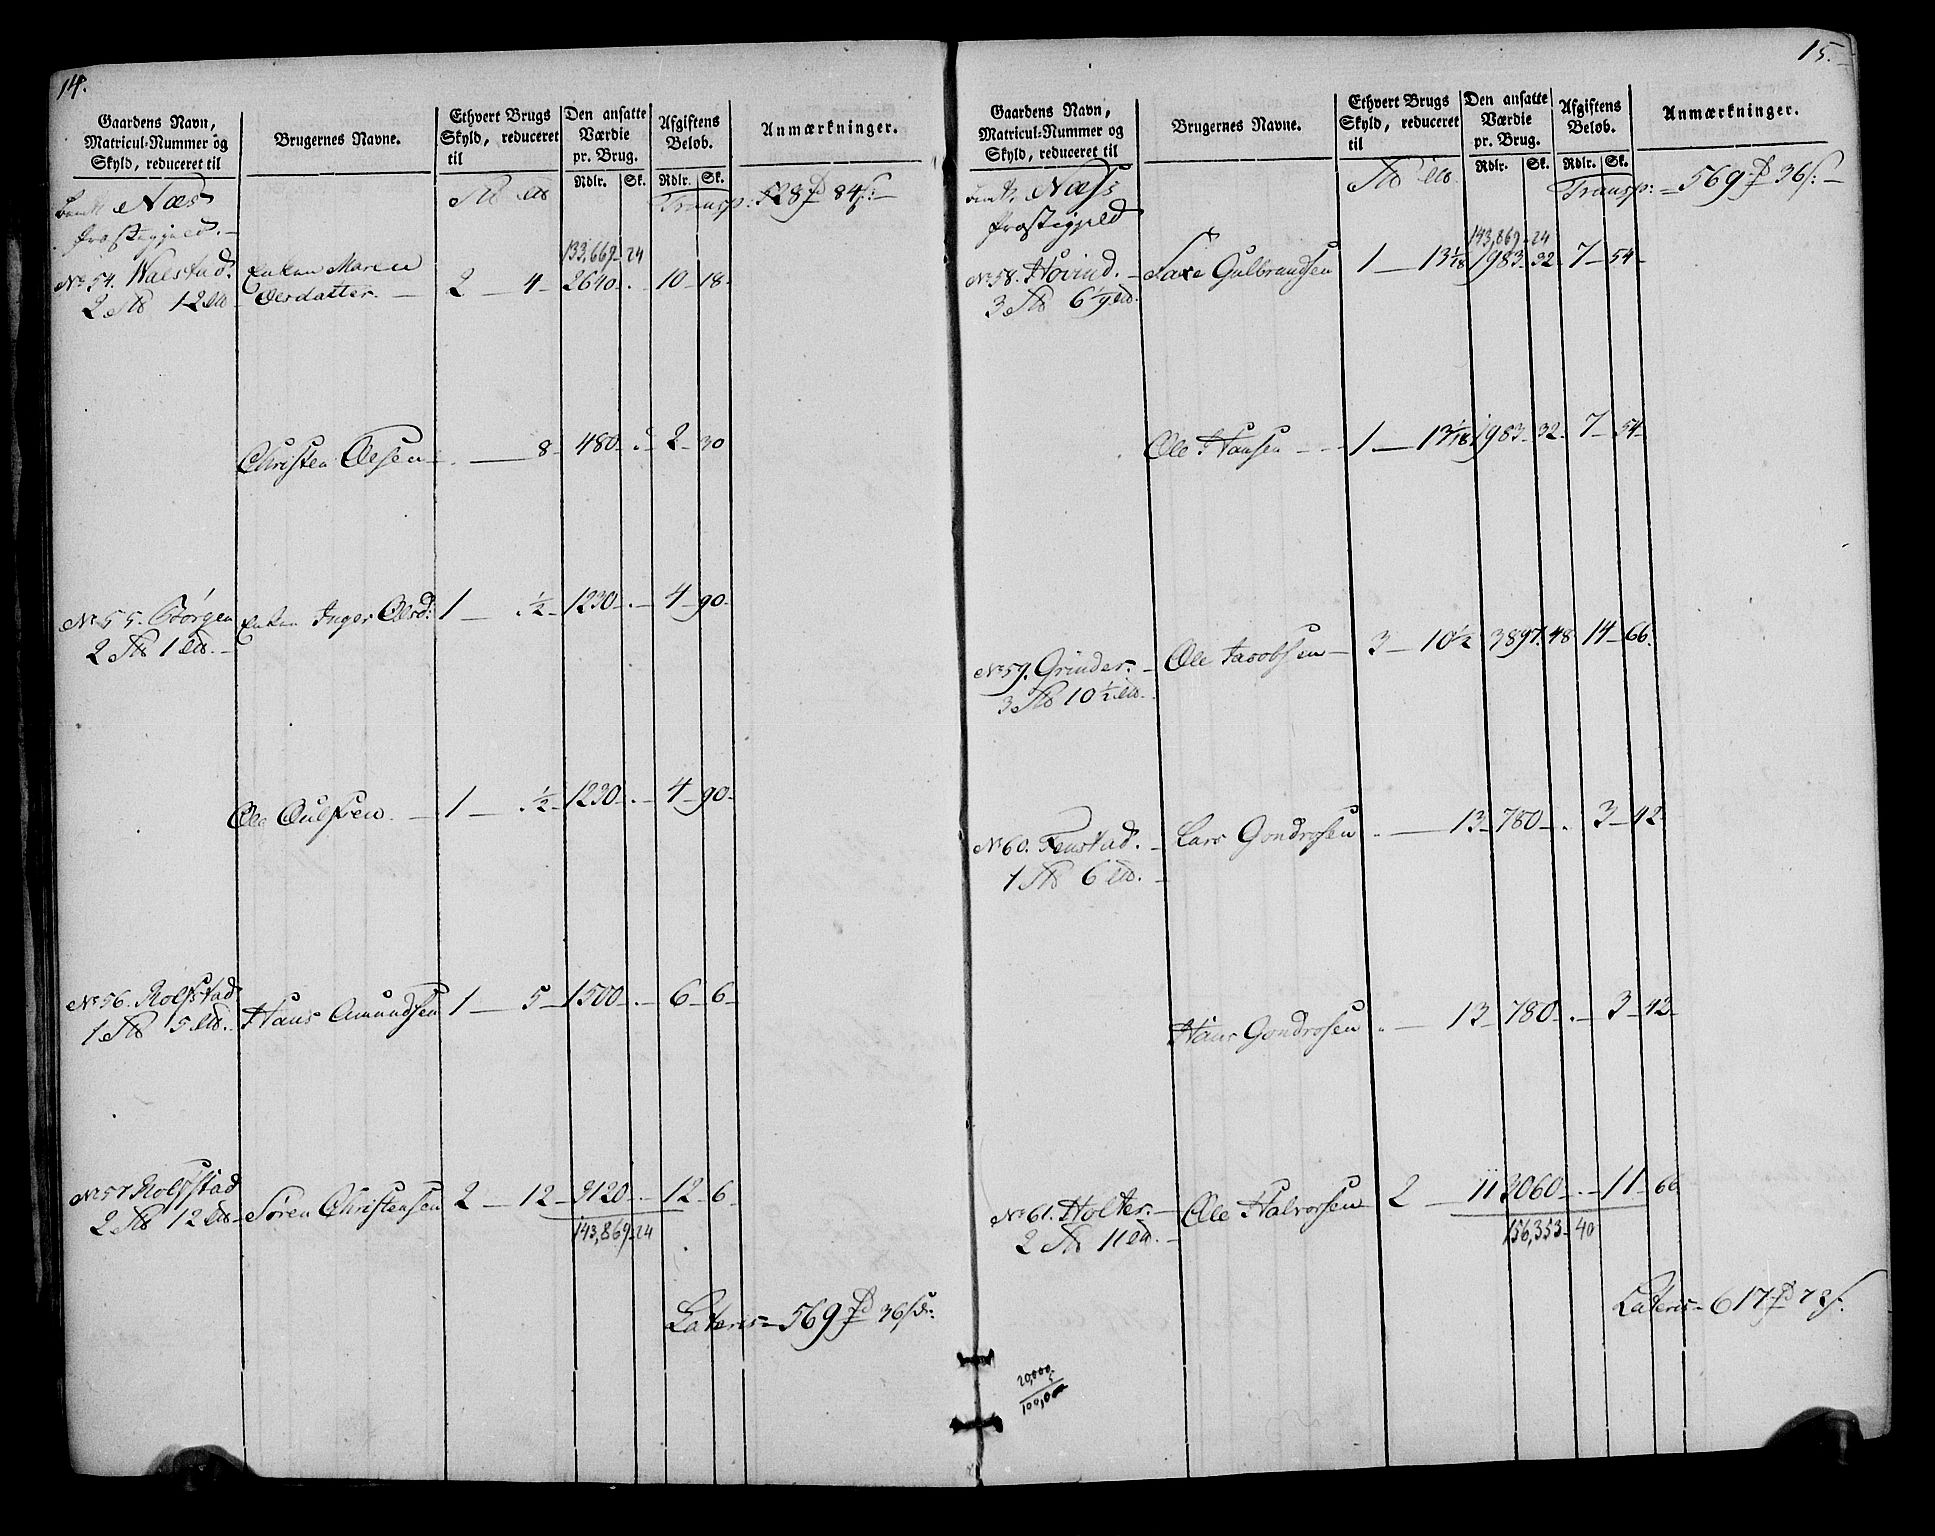 14.
Gaardens Navn, Matricul-Nummer og Skyld, reduceret til
Brugernes Navne.
Ethvert Brugs Skyld, reduceret til
Den ansatte Værdie pr. Brug.
Rdlr. Sk.
Afgiftens Beløb.
Rdlr. Sk.
Anmærkninger.
Næs
Præstegield.
Transp: 528 84
133,669 - 24
No 54. Walstad. Enken Maren
2 12 Olsdatter. 2 4 2640 . 10 18
Christen Olsen 8 480 . 2 30
No 55. Børgen Enken Inger Olsd: 1 ½ 1230 . 4 90
2 1
Ole Oulfsen 1 ½ 1230 . 4 90
No 56. Rolfstad Hans Amundsen 1 5 1500 . 6 6
1 5
No 57 Rolfstad Søren Christensen 2 12 3120 . 12 6
2 12
143,869 - 24
Lateris 569 36
15.
Gaardens Navn, Matricul-Nummer og Skyld, reduceret til
Brugernes Navne.
Ethvert Brugs Skyld, reduceret til
Den ansatte Værdie pr. Brug.
Rdlr. Sk.
Afgiftens Beløb.
Rdlr. Sk.
Anmærkninger.
Næss
Præstegield
Transp: 569 36
143,869 - 24
No 58. Hovind. Saxe Gulbrandsen 1 13 1/18 1983 32 7 54
3 6 1/9
Ole Hansen 1 13 1/18 1983 32 7 54
No 59. Grinder. Ole Jacobsen 3 10 ½ 3897 48 14 66
3 10 ½
No 60. Fenstad. Lars Gondrosen 13 780 . 3 42
1 6
Hans Gondrosen 13 780 . 3 42
No 61. Holter. Ole Halvorsen 2 11 3060 . 11 66
2 11
156,353 - 40
Lateris 617 72
20,000
5
100,000